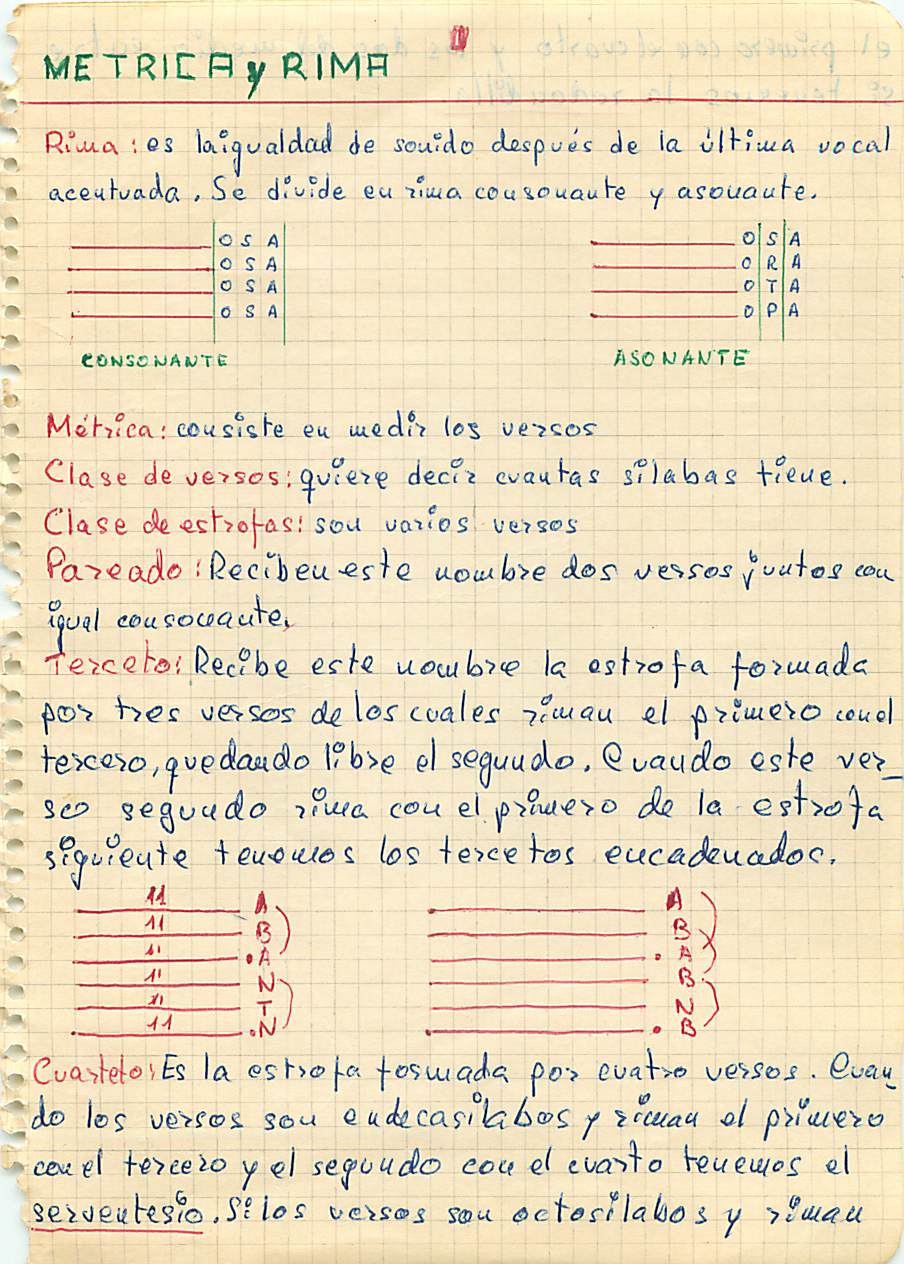 1
METRICA y RIMA
Rima: es la igualdad de sonido después de la última vocal
acentuada. Se divide en rima consonante y asonante.
O S A O S A
O S A O R A
O S A O T A
O S A O P A
CONSONANTE ASONANTE
Métrica: consiste en medir los versos
Clase de versos: quiere decir cuantas sílabas tiene.
Clase de estrofas: son varios versos
Pareado: Reciben este nombre dos versos juntos con
igual consonante.
Terceto: Recibe este nombre la estrofa formada
por tres versos de los cuales riman el primero con el
tercero, quedando libre el segundo. Cuando este ver_
so segundo rima con el primero de la estrofa
siguiente tenemos los tercetos encadenados.
11 A A
11 B B
11 A A
11 N B
11 T N
11 N B
Cuarteto: Es la estrofa formada por cuatro versos. Cuan_
do los versos son endecasílabos y riman el primero
con el tercero y el segundo con el cuarto tenemos el
serventesio. Si los versos son octosílabos y riman